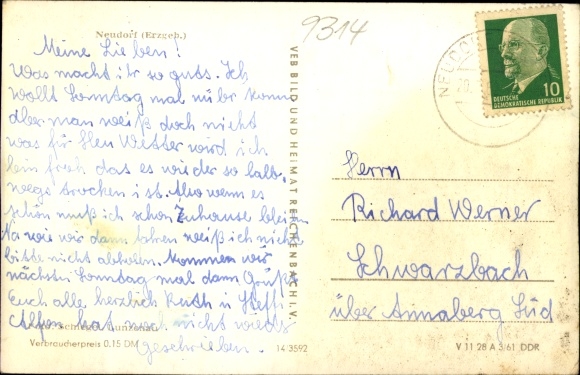 Neudorf (Erzgeb.)
9314
Meine Lieben!
Was macht ihr so guts. Ich
wollt Sonntag mal rüber komm
aber man weiß doch nicht
was für Wetter wird ich
bin froh das es wieder so halb
wegs trocken ist. Also wenn es
schön muß ich schon Zuhause bleiben
Na wie wir dann fahren weiß ich nicht
bitte nicht abholen. kommen wir
nächsten Sonntag mal dann Grüßt
Euch alle herzlich Ruth u. Steffi
hat mal nicht wieder
geschrieben.
Verbraucherpreis 0.15 DM
14/3592
VEB BILD UND HEIMAT REICHENBACH I. V.
NEUDO
10
DEUTSCHE
DEMOKRATISCHE REPUBLIK
Herrn
Richard Werner
Schwarzbach
über Annaberg Süd
V 11 28 A 3/61 DDR